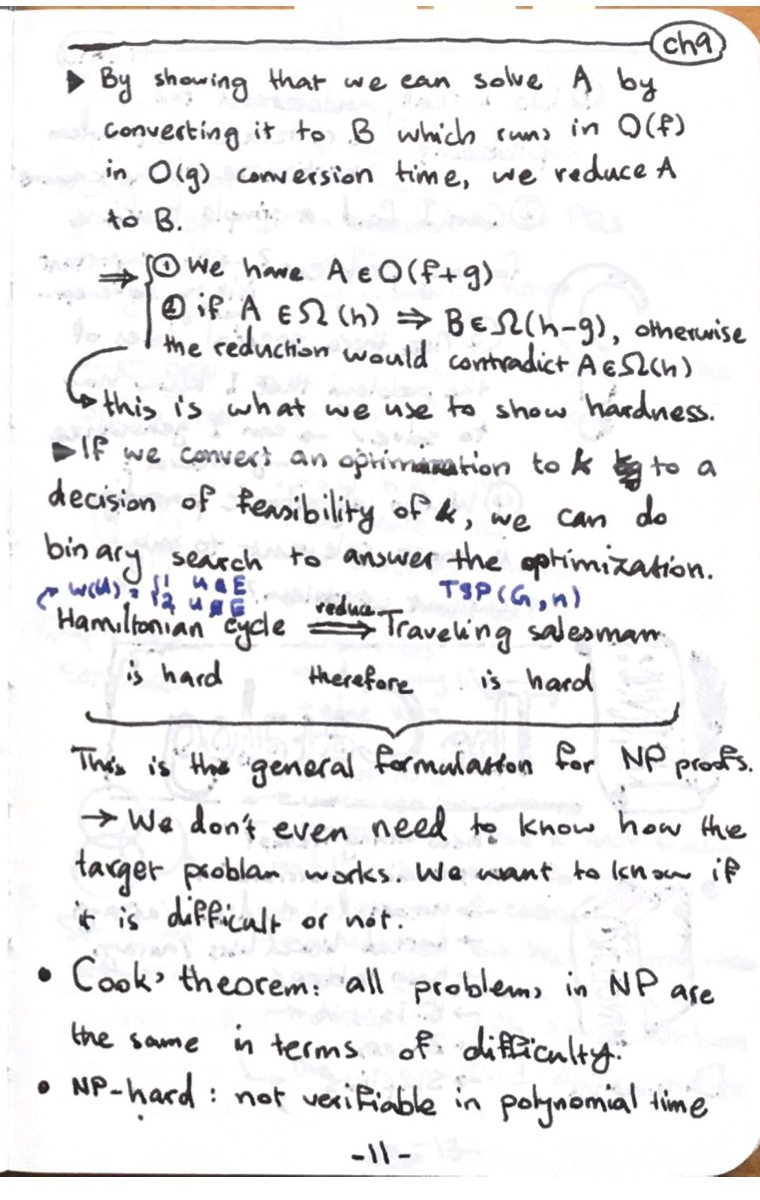 ch9
▶ By showing that we can solve A by
converting it to B which runs in O(f)
in O(g) conversion time, we reduce A
to B.
⇒ ① We have A ∈ O(f+g)
② if A ∈ Ω(h) ⇒ B ∈ Ω(h-g), otherwise
the reduction would contradict A ∈ Ω(h)
↳ this is what we use to show hardness.
▶ If we convert an optimization to k to a
decision of feasibility of k, we can do
binary search to answer the optimization.
w(u) = {1 u ∈ E TSP(G,n)
2 u ∉ E
Hamiltonian cycle reduce ⇒ Traveling salesman
is hard therefore is hard
This is the general formulation for NP proofs.
→ We don't even need to know how the
target problem works. We want to know if
it is difficult or not.
• Cook's theorem: all problems in NP are
the same in terms of difficulty.
• NP-hard: not verifiable in polynomial time
-11-